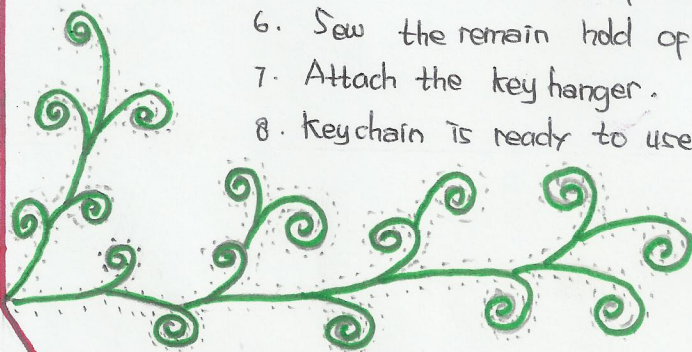 6. Sew the remain hold of
7. Attach the key hanger.
8. keychain is ready to use